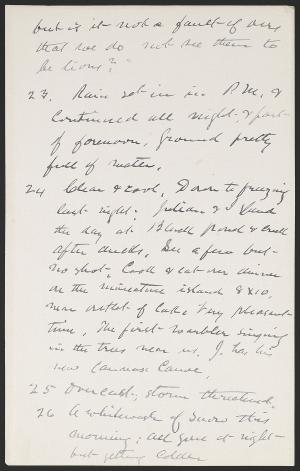 but is it not a fault of ours
that we do not see them to
be lions?"
23. Rain set in in P.M. &
continued all night & part
of forenoon. Ground pretty
full of water.
24 Clear & cool. Down to freezing
last night; Julian & I spend
the day at Black pond & creek
after ducks. See a few but
no shot. Cook & eat our dinner
on the miniature island 8 x 10,
near outlet of lake. Very pleasant
time. The first warbler singing
in the trees near us. J. has his
new canvass canoe.
25 Overcast; storm threatened.
26 A whitewash of snow this
morning; all gone at night
but getting colder